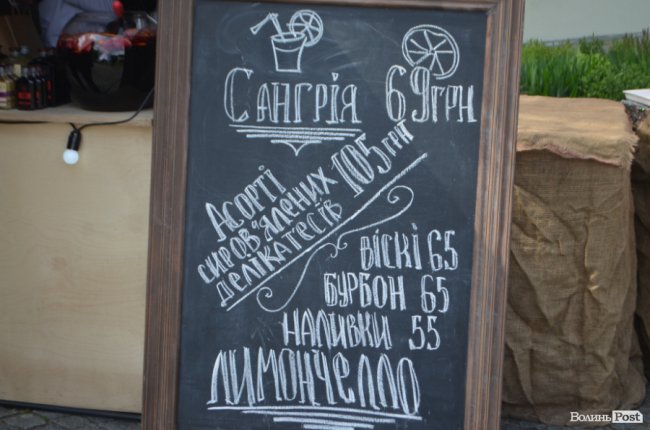 Сангрія 69грн
Асорті
сиров'ялених
делікатесів
105грн
Віскі 65
Бурбон 65
Наливки 55
Лимончелло
Волинь Post